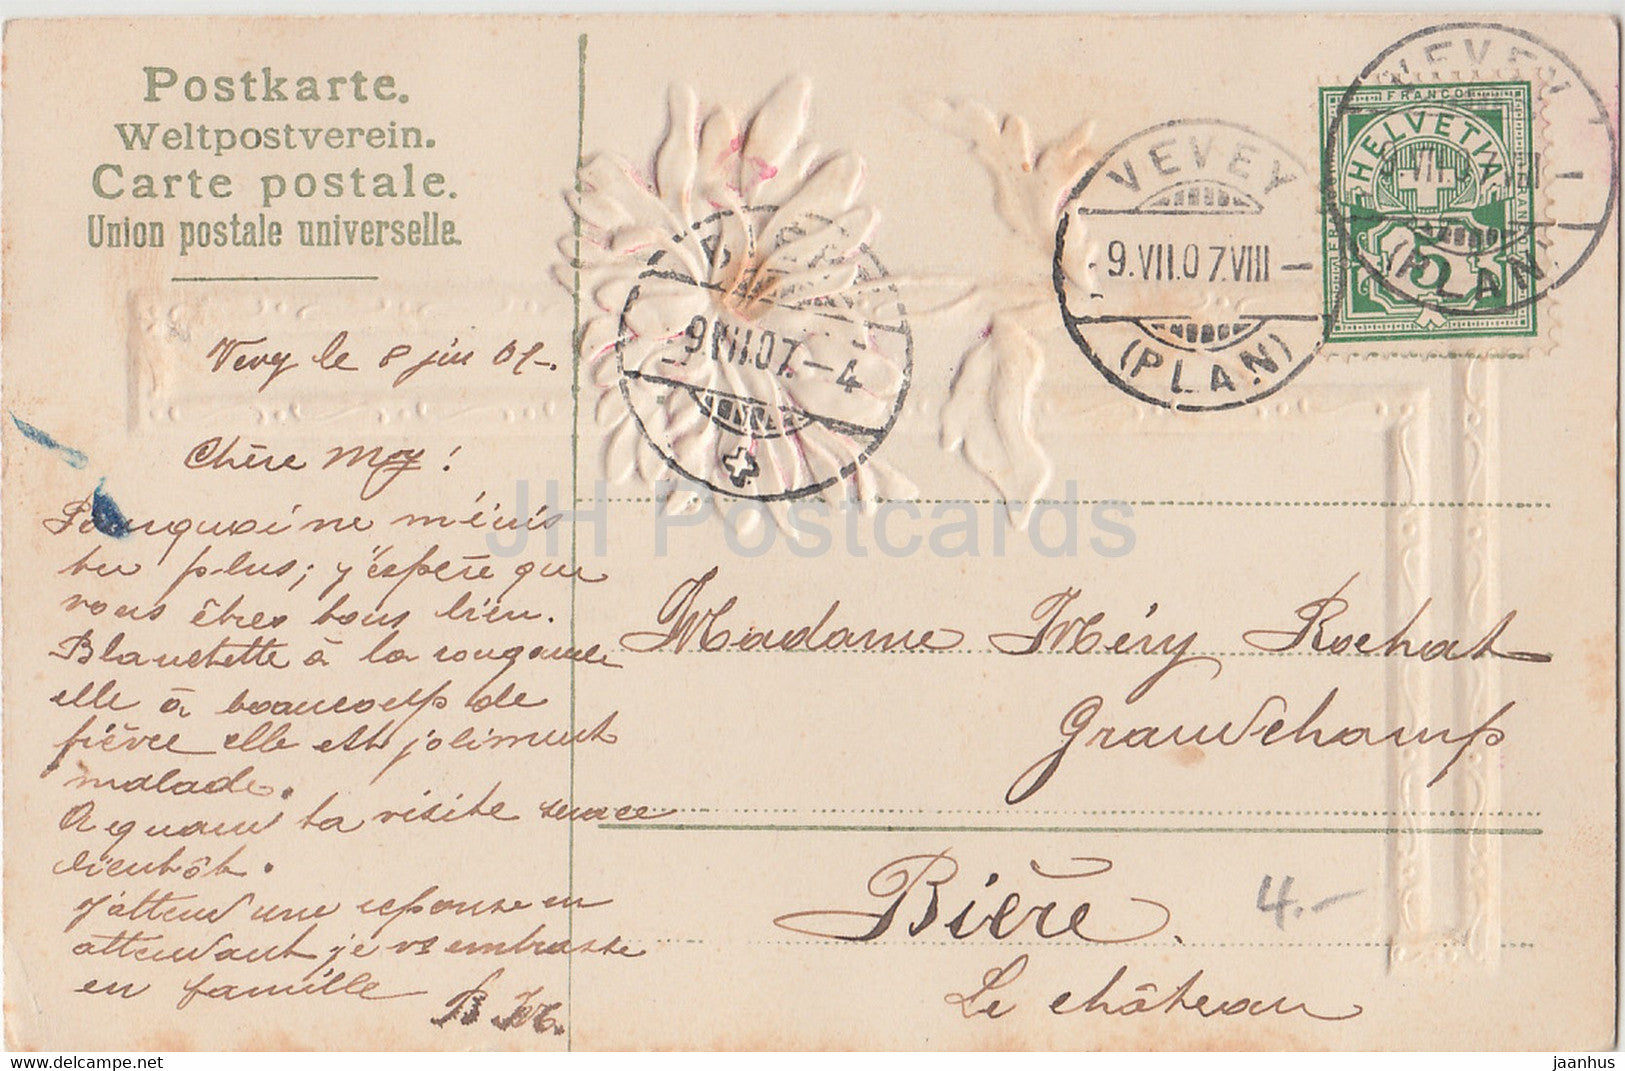 Postkarte.
Weltpostverein.
Carte postale.
Union postale universelle.
Vevey le 8 jui 07.
Chère Méry !
Pourquoi ne m'écris
tu plus; j'éspère que
vous êtres tous bien.
Blanchette à la rougeole
elle à beaucoup de
fièvre elle est joliment
malade.
A quand ta visite
bientôt.
J'attend une reponse en
attendant je vs embrasse
en famille
HELVETIA
FRANCO
5
VEVEY
9.VII.07.VIII
(PLAN)
VEVEY
9.VII.07.VIII
(PLAN)
BIÈRE
9.VII.07.-4
JH Postcards
Madame Méry Rochat
Grandchamp
Bière.
Le château
4.-
www.delcampe.net
jaanhus